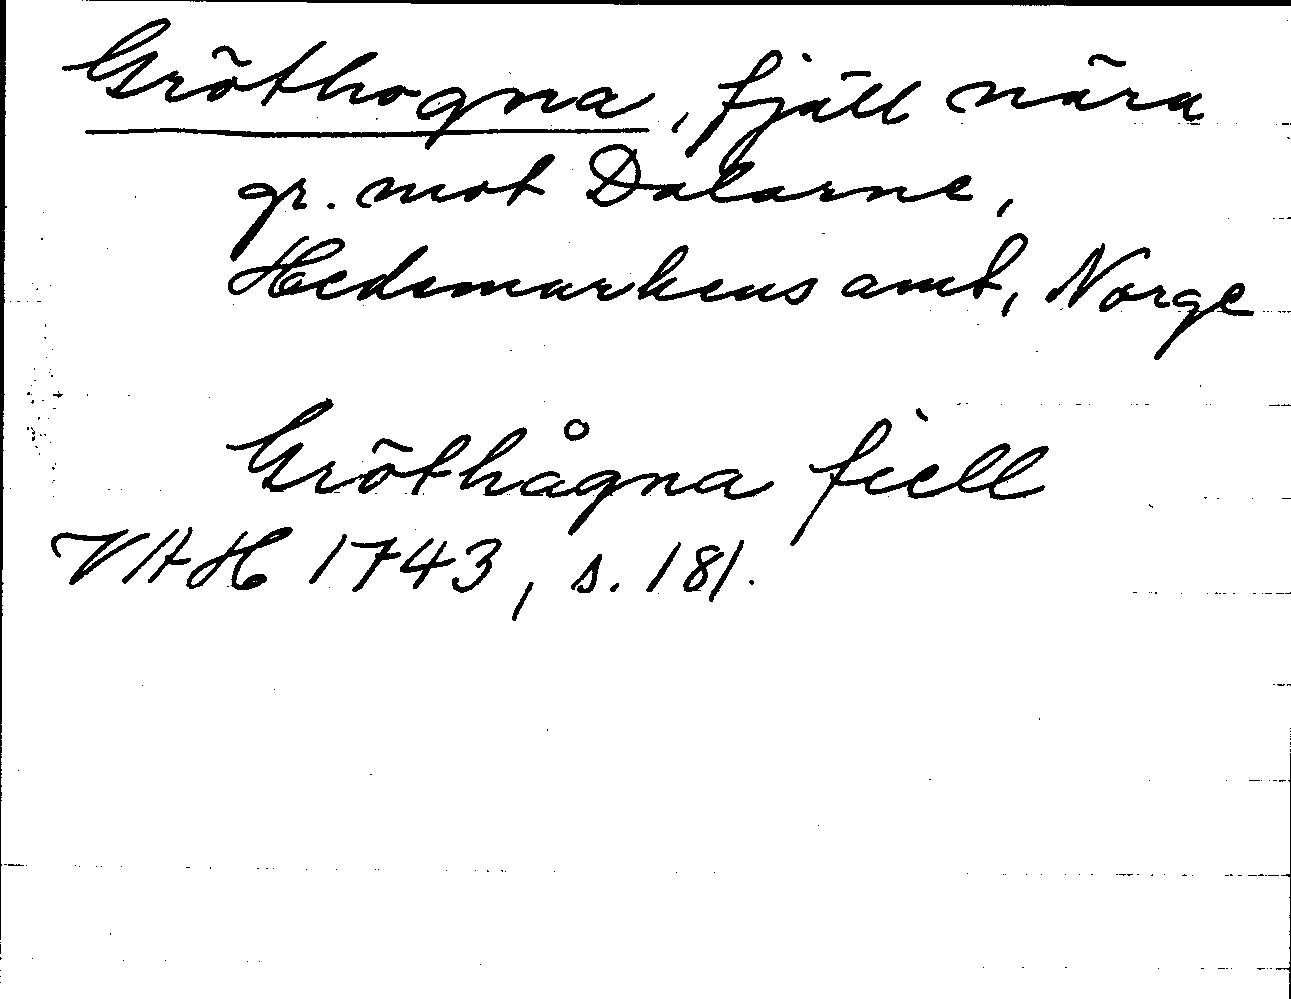 Gröthogna, fjäll nära
gr. mot Dalarne,
Hedemarkens amt, Norge
Gröthågna fiell
VAH 1743, s. 181.